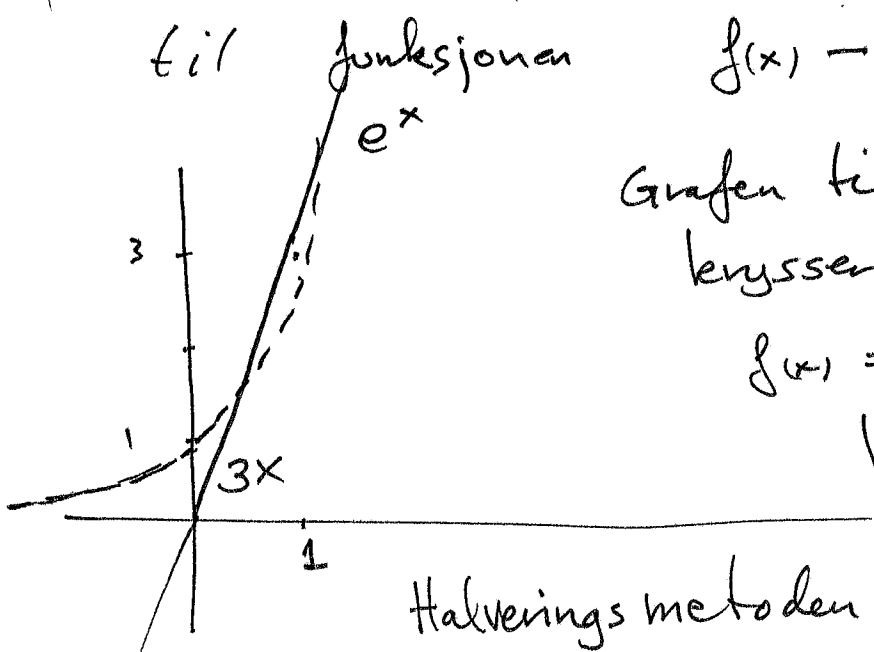 til funksjonen f(x) —
e^x
Grafen ti
krysser
3
f(x) =
1
3x
1
Halveringsmetoden